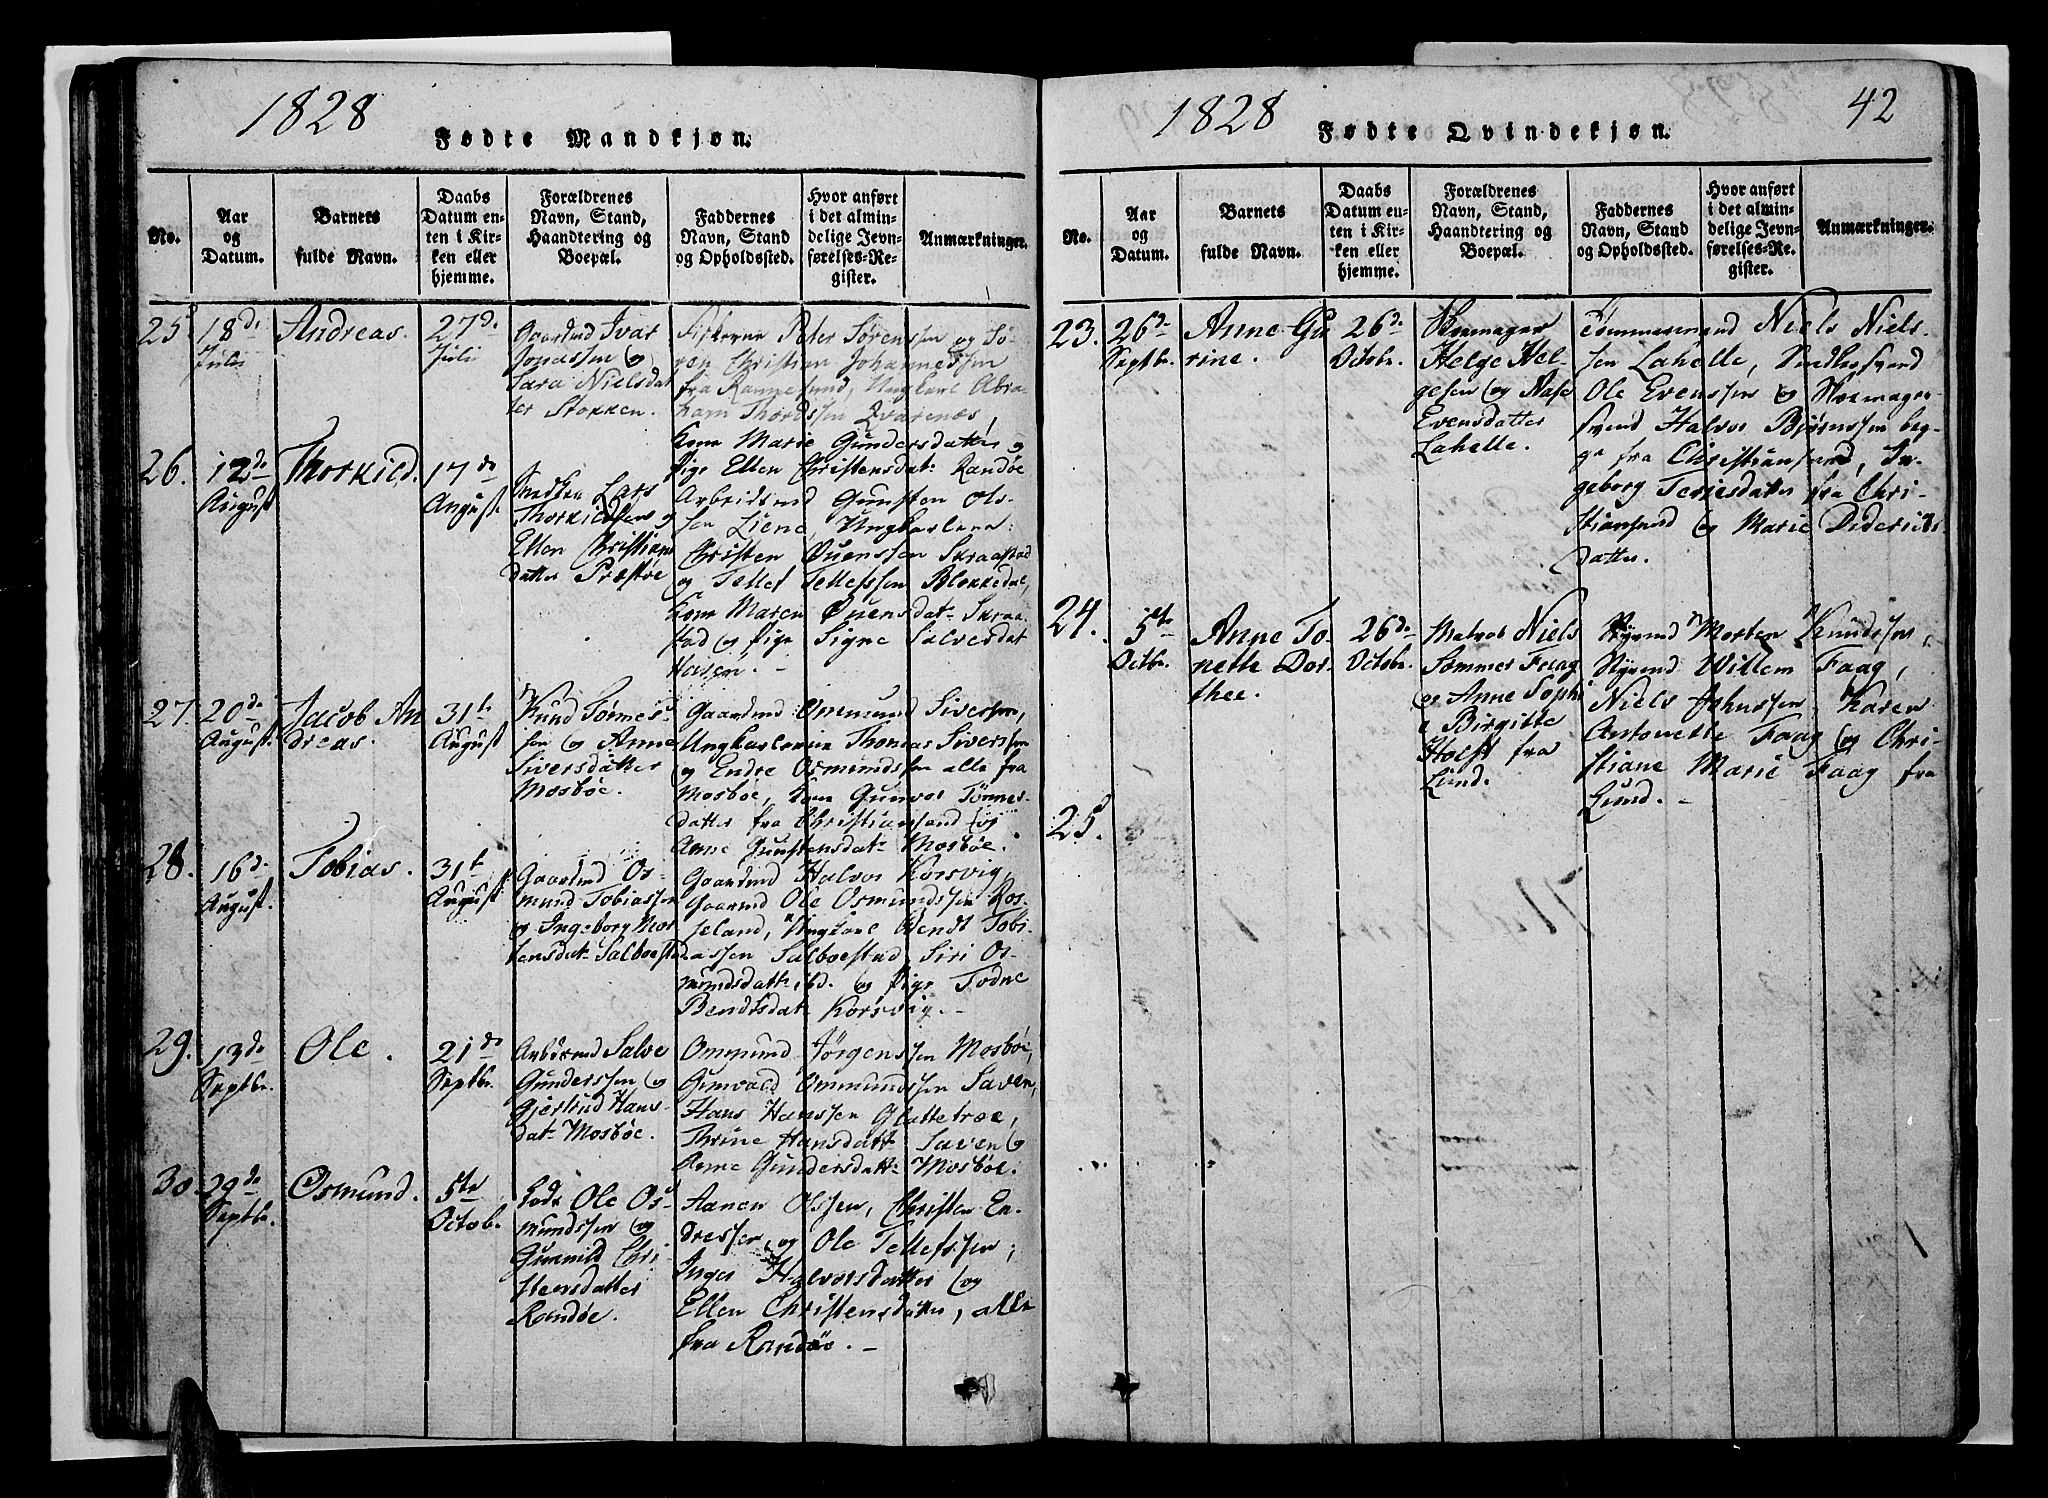 1828
Fødte Mandkjøn.
No.
Aar
og
Datum.
Barnets
fulde Navn.
Daabs
Datum en-
ten i Kir-
ken eller
hjemme.
Forældrenes
Navn, Stand,
Haandtering og
Boepæl.
Faddernes
Navn, Stand
og Opholdssted.
Hvor anført
i det almin-
delige Jevn-
førelses-Re-
gister.
Anmærkninger.
25
18de
Juli
Andreas.
27de
Juli
Gaardmd Ivar
Jonassen og
Sara Nielsdat
ter Stokken.
Peter Sørenssen og Sø-
ren Christian Johannessen
fra Randesund, Ungkarl Abra-
ham Thordssen Qvarenæs,
Kone Marie Gundersdatter og
Pige Ellen Christensdat: Randøe
26.
12de
August
Thorkild.
17de
August
Lars
Thorkildsen og
Ellen Christians
datter Præstøe
Arbeidsmd Gunsten Ols-
sen Liene, Ungkarlene
Christen Ouenssen Skraastad
og Tellef Tellefssen Blokkedal,
Kone Maren Ouensdat: Skraa-
stad og Pige Signe Salvesdat
Hausen. -
27.
20de
August.
Jacob An
dreas.
31te
August
Knud Tønnes-
sen og Anne
Siversdatter
Mosbøe.
Gaardmd Ommund Siverssen,
Ungkarlene Thomas Siverssen
og Endre Osmundssen alle fra
Mosbøe, Kone Gunvor Tønnes-
datter fra Christiansand og
Anne Gunstensdat: Mosbøe.
28.
16de
August.
Tobias.
31te
August
Gaardmd Os-
mund Tobiassen
og Ingeborg Mor
tensdat: Salboestd
Gaardmd Halvor Korsvig,
Gaardmd Ole Osmundssen Ros-
seland, Ungkarl Bendt Tobi-
assen Salboestad, Siri Os-
mundsdatt: ibd. og Pige Todne
Bendtsdat: Korsvig. -
29.
13de
Septbr.
Ole.
21de
Septbr.
Arbdsmd Salve
Gunderssen og
Gjertrud Hans-
dat: Mosbøe.
Ommund Jørgenssen Mosbøe,
Gunvald Ommundssen Saven,
Hans Hanssen Glattetræe,
Thrine Hansdatt: Saven og
Anne Gundersdatt: Mosbøe.
30.
29de
Septbr.
Osmund.
5te
Octob.
Ole Os-
mundssen og
Gunnild Chri
stensdatter
Randøe.
Aanen Olssen, Christen En-
dressen, og Ole Tellefssen,
Inger Halvorsdatter og
Ellen Christensdatter, alle
fra Randøe. -
1828
Fødte Qvindekjøn.
42
No.
Aar
og
Datum.
Barnets
fulde Navn.
Daabs
Datum en-
ten i Kir-
ken eller
hjemme.
Forældrenes
Navn, Stand,
Haandtering og
Boepæl.
Faddernes
Navn, Stand
og Opholdssted.
Hvor anført
i det almin-
delige Jevn-
førelses-Re-
gister.
Anmærkninger.
23.
26de
Septbr.
Anne Gu
rine.
26de
Octobr.
Skomager
Helge Hel-
gesen og Aase
Evensdatter
Lahelle.
Tømmermand Niels Niels-
sen Lahelle, Snedkersvend
Ole Evenssen og Skomager-
svend Halvor Bjørnssen beg-
ge fra Christiansand, In-
geborg Terjesdatter fra Chri-
stiansand og Marie Dideriks
datter.
24.
5te
Octbr.
Anne To-
nette Dor-
thee.
26de
Octobr.
Matros Niels
Sommer Faag
og Anne Sophi
e Birgitte
Holst fra
Lund.
Styrmd Morten Knudssen,
Styrmd Willem Faag,
Niels Johnssen, Karen
Antonette Faag og Chri-
stiane Marie Faag fra
Lund. -
25.